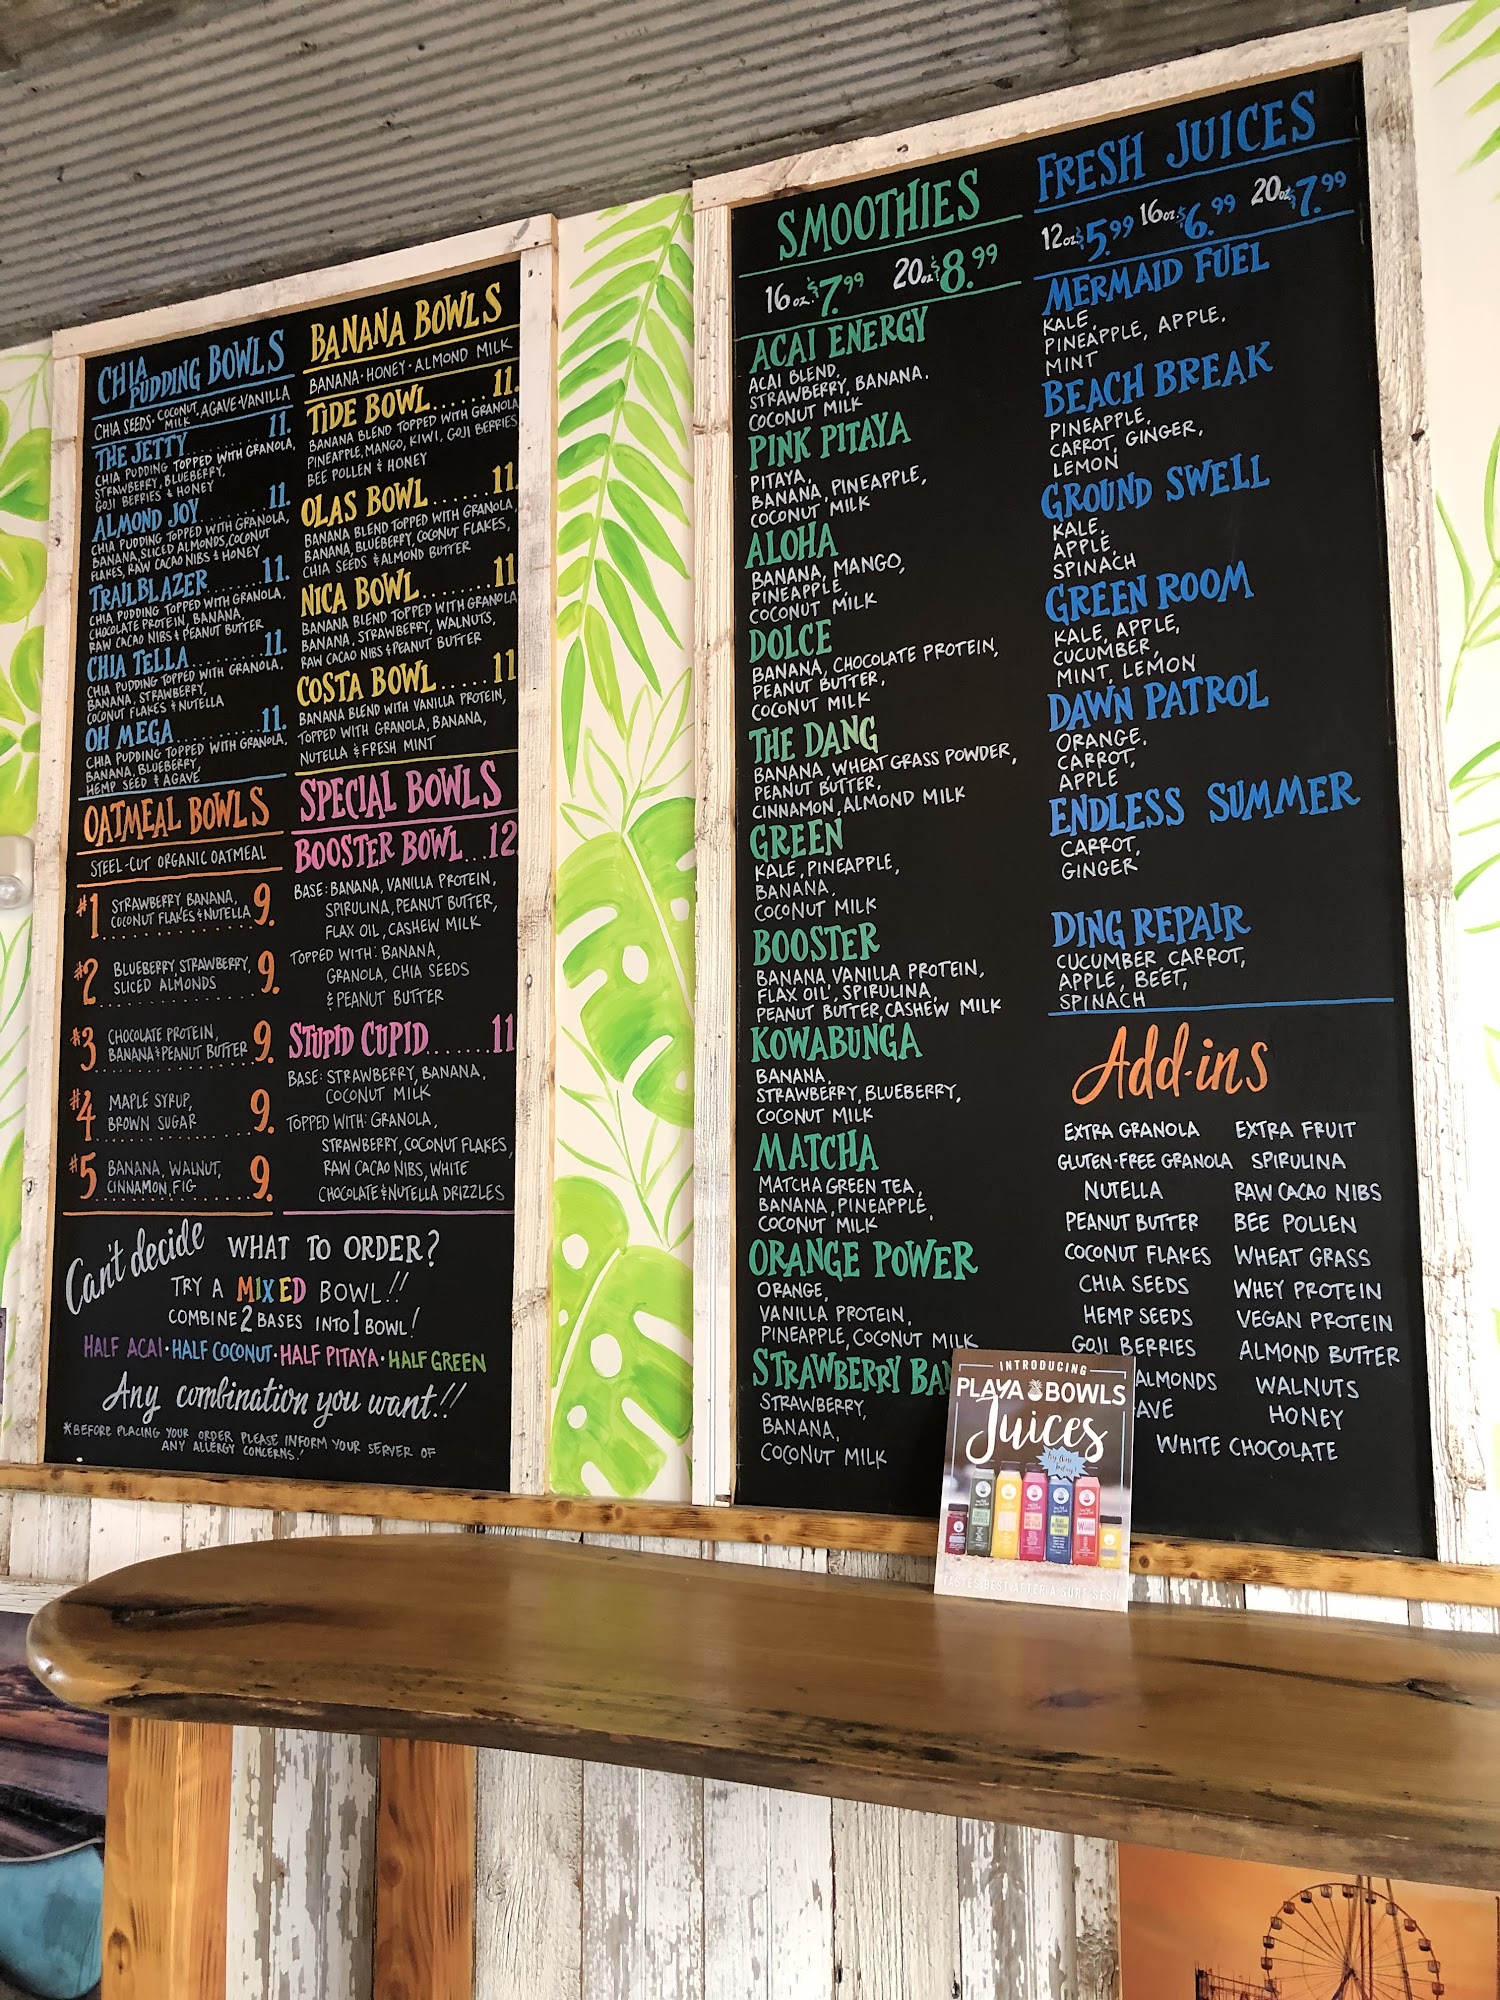 CHIA PUDDING BOWLS
CHIA SEEDS · COCONUT MILK · AGAVE · VANILLA
THE JETTY........11.
CHIA PUDDING TOPPED WITH GRANOLA,
STRAWBERRY, BLUEBERRY,
GOJI BERRIES & HONEY
ALMOND JOY........11.
CHIA PUDDING TOPPED WITH GRANOLA,
BANANA, SLICED ALMONDS, COCONUT
FLAKES, RAW CACAO NIBS & HONEY
TRAILBLAZER......11.
CHIA PUDDING TOPPED WITH GRANOLA,
CHOCOLATE PROTEIN, BANANA,
RAW CACAO NIBS & PEANUT BUTTER
CHIA TELLA........11.
CHIA PUDDING TOPPED WITH GRANOLA,
BANANA, STRAWBERRY,
COCONUT FLAKES & NUTELLA
OH MEGA........11.
CHIA PUDDING TOPPED WITH GRANOLA,
BANANA, BLUEBERRY,
HEMP SEED & AGAVE
OATMEAL BOWLS
STEEL-CUT ORGANIC OATMEAL
#1 STRAWBERRY BANANA, 9.
COCONUT FLAKES & NUTELLA
#2 BLUEBERRY, STRAWBERRY, 9.
SLICED ALMONDS
#3 CHOCOLATE PROTEIN, 9.
BANANA & PEANUT BUTTER
#4 MAPLE SYRUP, 9.
BROWN SUGAR
#5 BANANA, WALNUT, 9.
CINNAMON, FIG
BANANA BOWLS
BANANA · HONEY · ALMOND MILK
TIDE BOWL......11.
BANANA BLEND TOPPED WITH GRANOLA
PINEAPPLE, MANGO, KIWI, GOJI BERRIES
BEE POLLEN & HONEY
OLAS BOWL......11.
BANANA BLEND TOPPED WITH GRANOLA,
BANANA, BLUEBERRY, COCONUT FLAKES,
CHIA SEEDS & ALMOND BUTTER
NICA BOWL.......11
BANANA BLEND TOPPED WITH GRANOLA
BANANA, STRAWBERRY, WALNUTS,
RAW CACAO NIBS & PEANUT BUTTER
COSTA BOWL.....11
BANANA BLEND WITH VANILLA PROTEIN,
TOPPED WITH GRANOLA, BANANA,
NUTELLA & FRESH MINT
SPECIAL BOWLS
BOOSTER BOWL...12
BASE: BANANA, VANILLA PROTEIN,
SPIRULINA, PEANUT BUTTER,
FLAX OIL, CASHEW MILK
TOPPED WITH: BANANA,
GRANOLA, CHIA SEEDS
& PEANUT BUTTER
STUPID CUPID.......11
BASE: STRAWBERRY, BANANA,
COCONUT MILK
TOPPED WITH: GRANOLA,
STRAWBERRY, COCONUT FLAKES,
RAW CACAO NIBS, WHITE
CHOCOLATE & NUTELLA DRIZZLES
Can't decide WHAT TO ORDER?
TRY A MIXED BOWL!!
COMBINE 2 BASES INTO 1 BOWL!
HALF ACAI · HALF COCONUT · HALF PITAYA · HALF GREEN
Any combination you want!!
*BEFORE PLACING YOUR ORDER PLEASE INFORM YOUR SERVER OF
ANY ALLERGY CONCERNS!
SMOOTHIES
16oz. $7.99 20oz. $8.99
ACAI ENERGY
ACAI BLEND,
STRAWBERRY, BANANA.
COCONUT MILK
PINK PITAYA
PITAYA,
BANANA, PINEAPPLE,
COCONUT MILK
ALOHA
BANANA, MANGO,
PINEAPPLE,
COCONUT MILK
DOLCE
BANANA, CHOCOLATE PROTEIN,
PEANUT BUTTER,
COCONUT MILK
THE DANG
BANANA, WHEAT GRASS POWDER,
PEANUT BUTTER,
CINNAMON, ALMOND MILK
GREEN
KALE, PINEAPPLE,
BANANA,
COCONUT MILK
BOOSTER
BANANA, VANILLA PROTEIN,
FLAX OIL, SPIRULINA,
PEANUT BUTTER, CASHEW MILK
KOWABUNGA
BANANA,
STRAWBERRY, BLUEBERRY,
COCONUT MILK
MATCHA
MATCHA GREEN TEA,
BANANA, PINEAPPLE,
COCONUT MILK
ORANGE POWER
ORANGE,
VANILLA PROTEIN,
PINEAPPLE, COCONUT MILK
STRAWBERRY BA
STRAWBERRY,
BANANA,
COCONUT MILK
FRESH JUICES
12oz. $5.99 16oz. $6.99 20oz. $7.99
MERMAID FUEL
KALE,
PINEAPPLE, APPLE,
MINT
BEACH BREAK
PINEAPPLE,
CARROT, GINGER,
LEMON
GROUND SWELL
KALE,
APPLE,
SPINACH
GREEN ROOM
KALE, APPLE,
CUCUMBER,
MINT, LEMON
DAWN PATROL
ORANGE,
CARROT,
APPLE
ENDLESS SUMMER
CARROT,
GINGER
DING REPAIR
CUCUMBER CARROT,
APPLE, BEET,
SPINACH
Add-ins
EXTRA GRANOLA EXTRA FRUIT
GLUTEN-FREE GRANOLA SPIRULINA
NUTELLA RAW CACAO NIBS
PEANUT BUTTER BEE POLLEN
COCONUT FLAKES WHEAT GRASS
CHIA SEEDS WHEY PROTEIN
HEMP SEEDS VEGAN PROTEIN
GOJI BERRIES ALMOND BUTTER
ALMONDS WALNUTS
AVE HONEY
WHITE CHOCOLATE
INTRODUCING
PLAYA BOWLS
Juices
Try One Today!
TASTES BEST AFTER A SURF SESH